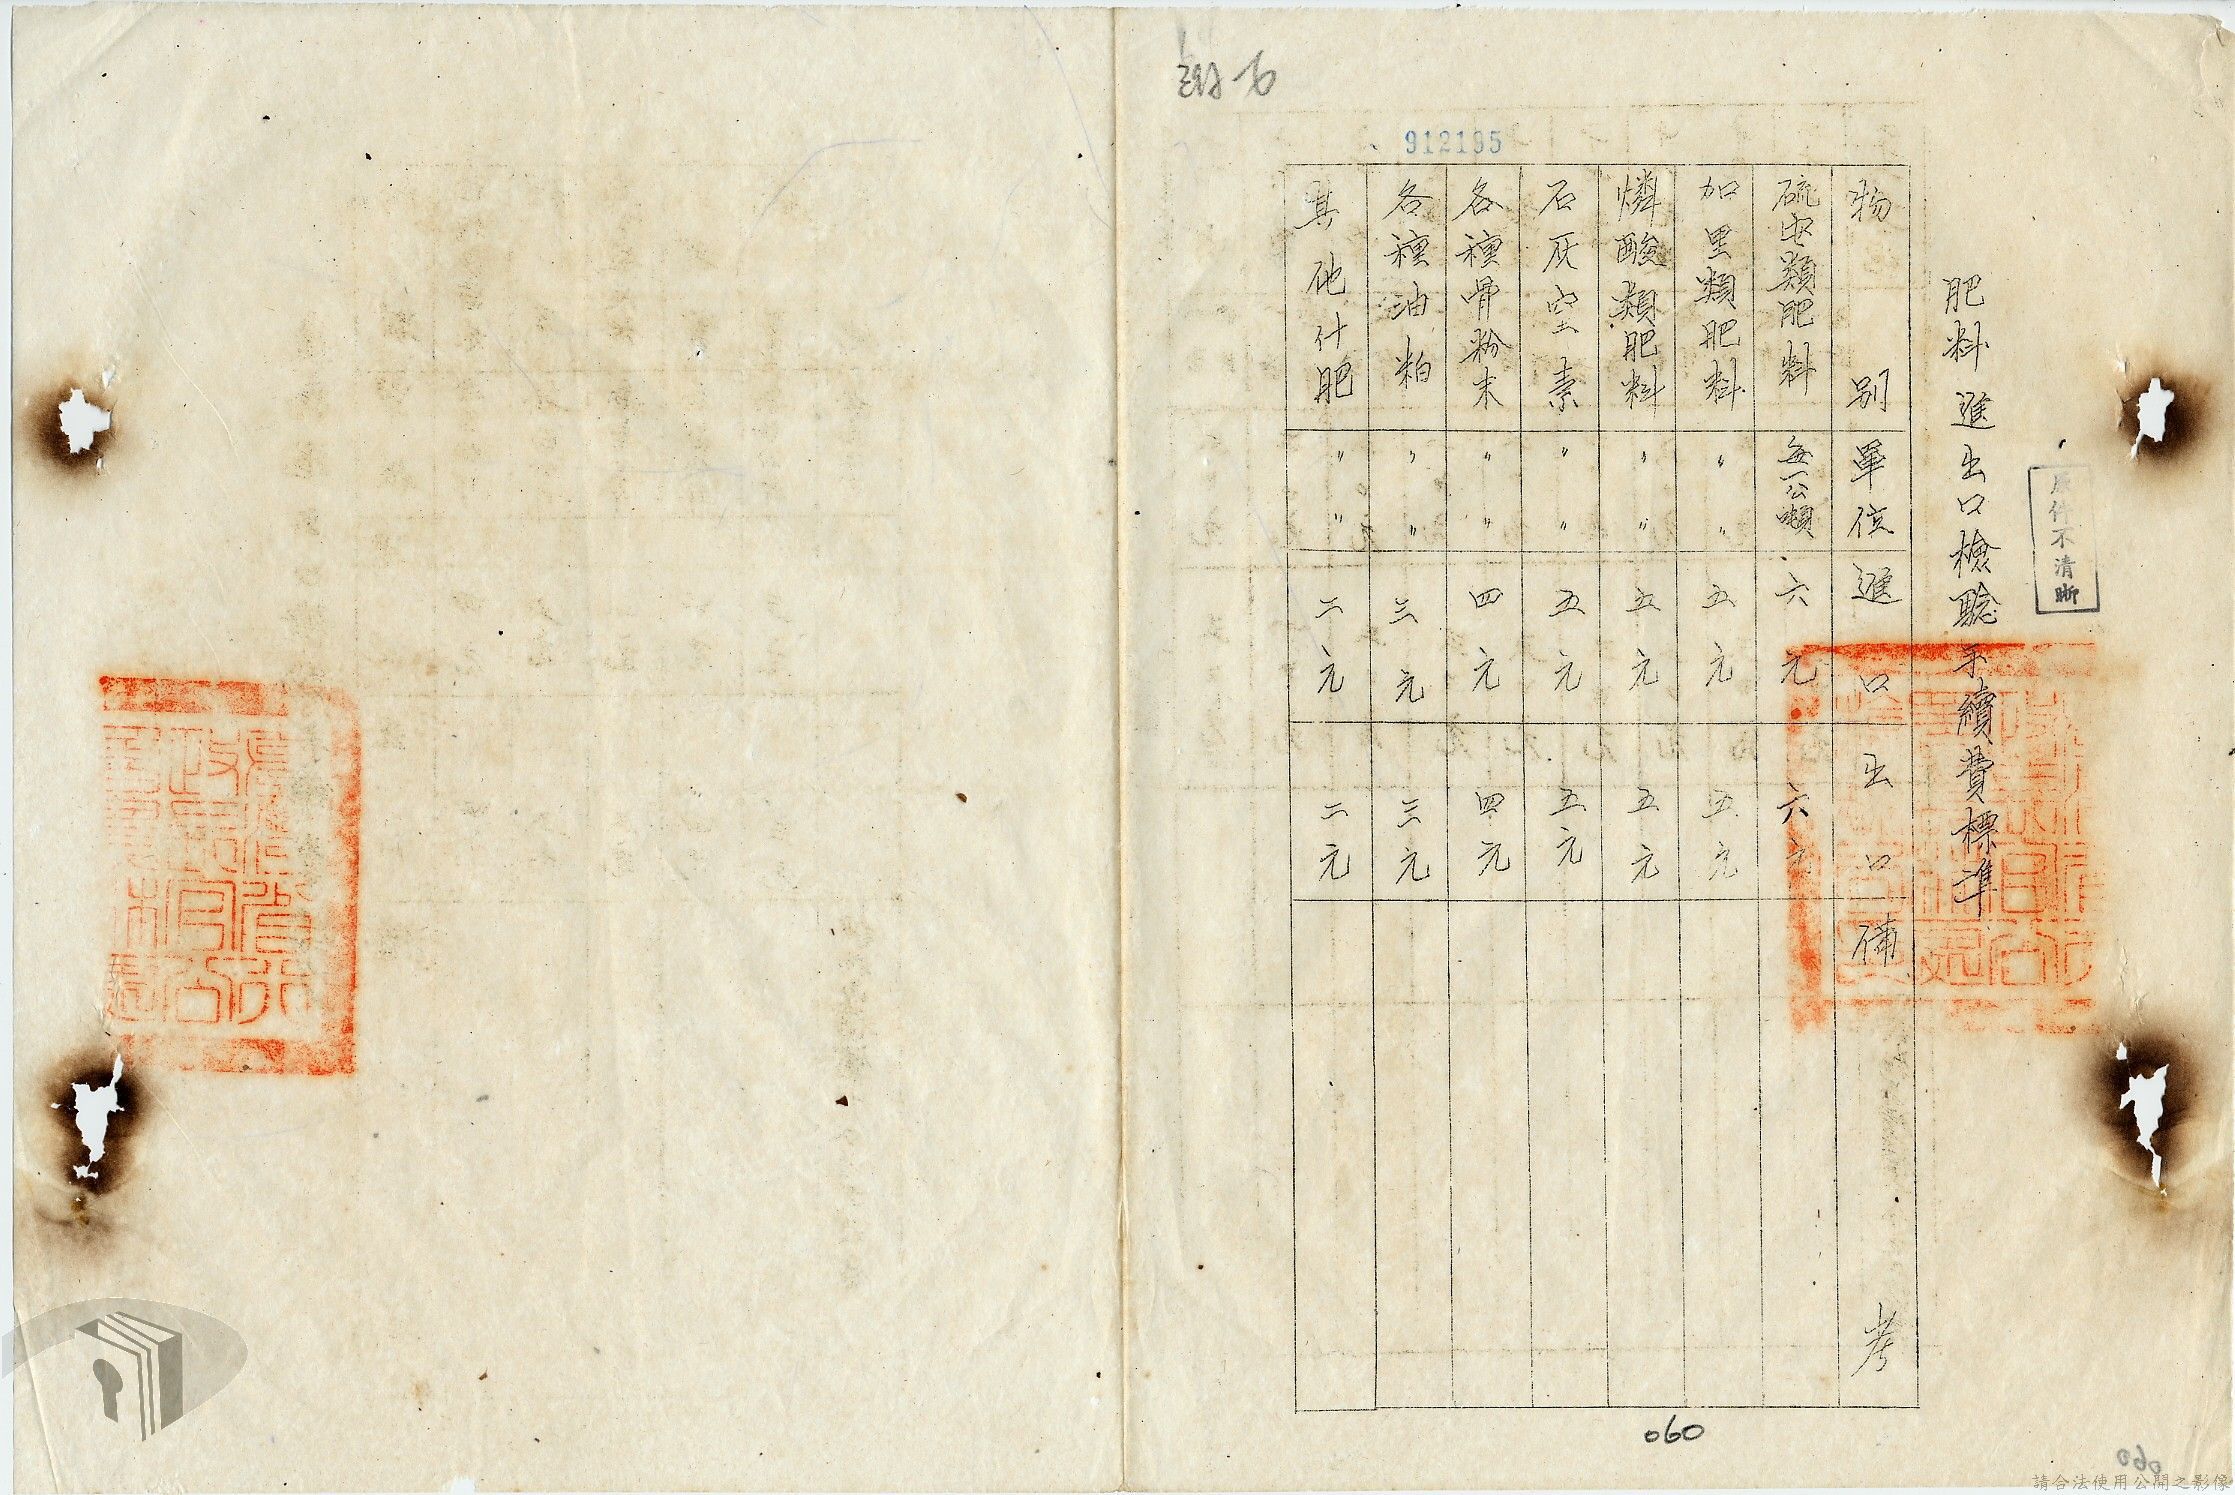 原件不清晰
肥料進出口檢驗手續費標準
物別 單位 進口 出口 備考
硫安類肥料 每一公噸 六元 六元
加里類肥料 〃 〃 五元 五元
燐酸類肥料 〃 〃 五元 五元
石灰窒素 〃 〃 五元 五元
各種骨粉末 〃 〃 四元 四元
各種油粕 〃 〃 三元 三元
其他什肥 〃 〃 二元 二元
912195
060
060
請合法使用公開之影像